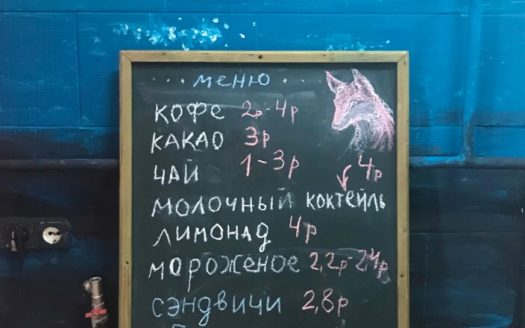 ...меню...
кофе 2р-4р
какао 3р
чай 1-3р
4р
молочный коктейль
лимонад 4р
мороженое 2,2р-2,4р
сэндвичи 2,8р